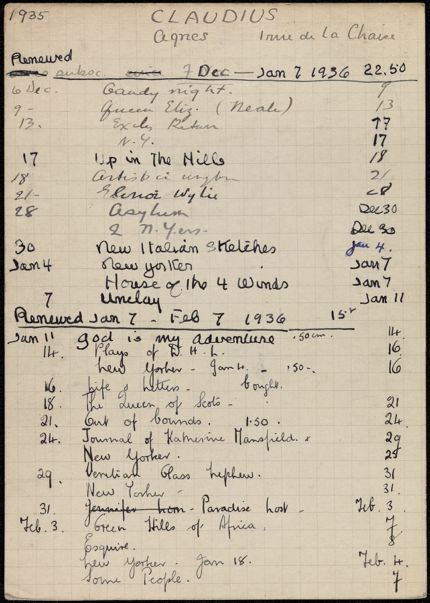 1935 CLAUDIUS
Agnes Irme de La Chaise
Renewed
subsc. 7 Dec — Jan 7 1936 22.50
6 Dec. Gaudy night. 9
9 - Queen Eliz. (Neale) 13
13. Exiles Return 17
N.Y. 17
17 Up in The Hills 18
18 Artist 21
21 - Elinor Wylie 28
28 Asylum Dec 30
2 N.Yers. Dec 30
30 New Italian Sketches Jan 4.
Jan 4 New Yorker Jan 7
House of the 4 Winds Jan 7
7 Unclay Jan 11
Renewed Jan 7 - Feb 7 1936 15fr
Jan 11 God is my adventure .50cm. 14.
14. Plays of D. H. L. 16
New Yorker - Jan 4. - .50-. 16
16. Life & Letters - bought.
18. The Queen of Scots - 21
21. Out of bounds. 1.50. 24.
24. Journal of Katherine Mansfield. 29
New Yorker. 29
29. Venetian Glass Nephew. 31
New Yorker - 31.
31. Jennifer Lorn - Paradise Lost - Feb. 3.
Feb. 3. Green Hills of Africa. 7
Esquire. 8
New Yorker. Jan 18. Feb. 4.
Some People. 7